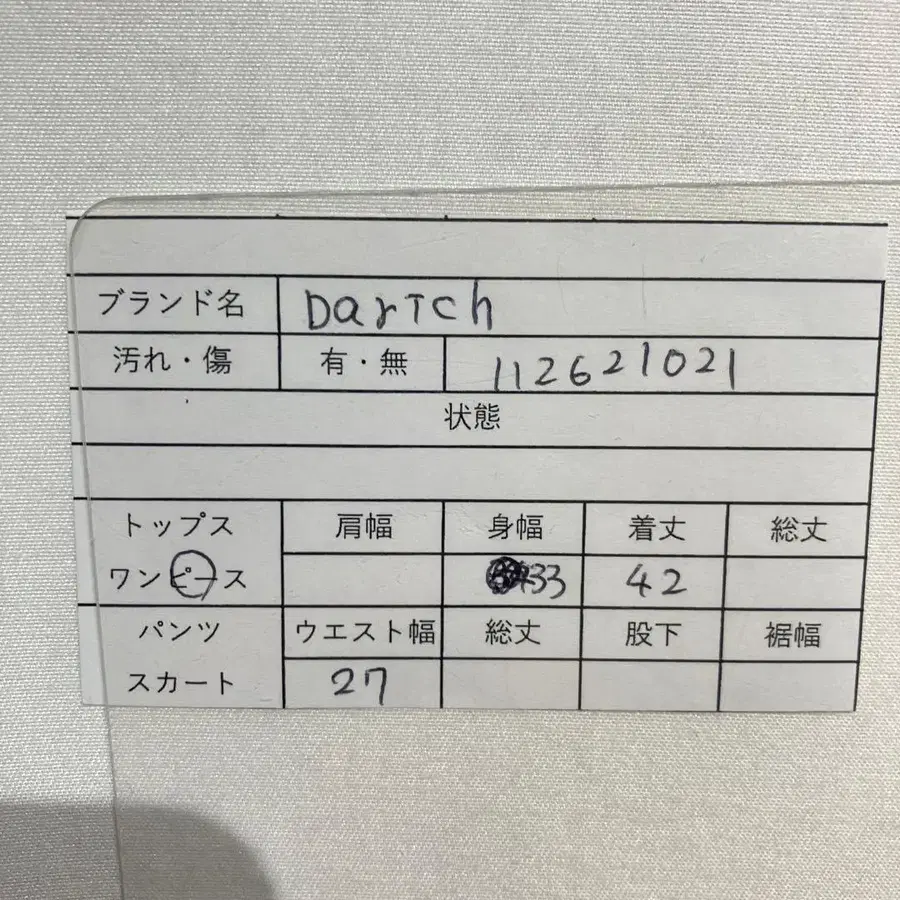 ブランド名 DarTch
汚れ・傷 有・無 112621021
状態
トップス 肩幅 身幅 着丈 総丈
ワンピース 33 42
パンツ ウエスト幅 総丈 股下 裾幅
スカート 27